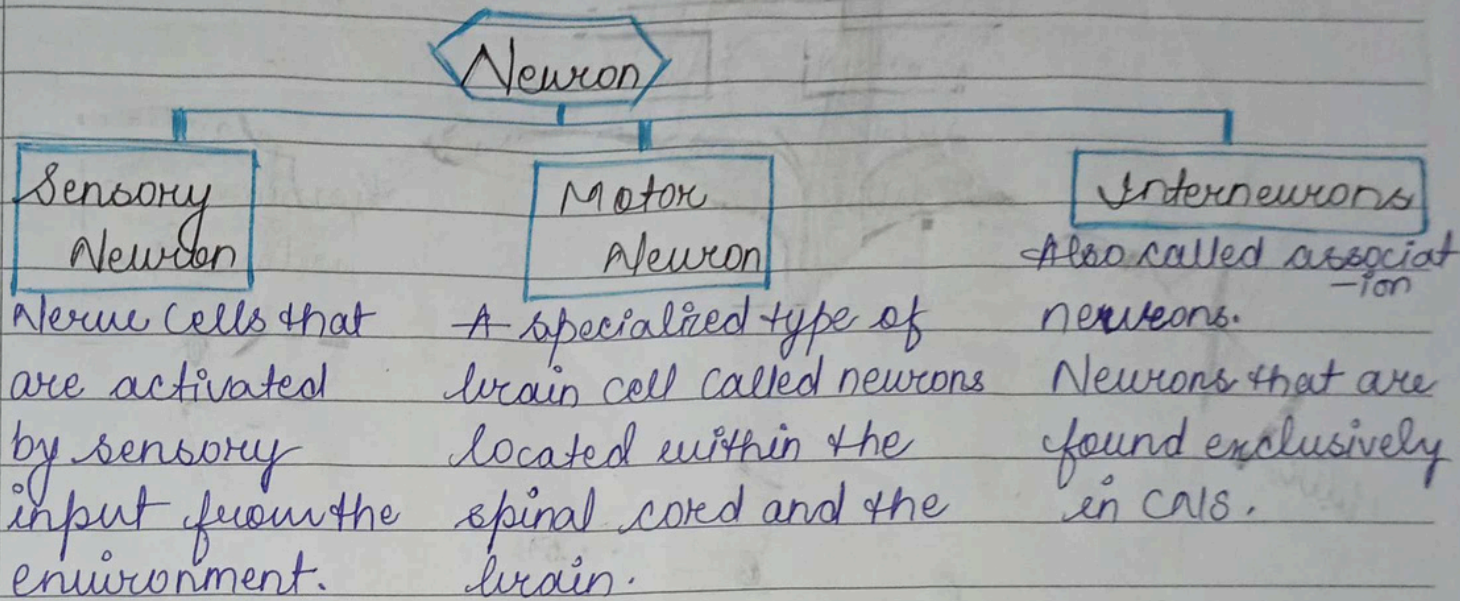 Neuron
Sensory
Neuron
Nerve cells that
are activated
by sensory
input from the
environment.
Motor
Neuron
A specialized type of
brain cell called neurons
located within the
spinal cord and the
brain.
Interneurons
Also called associat
-ion
neurons.
Neurons that are
found exclusively
in CNS.